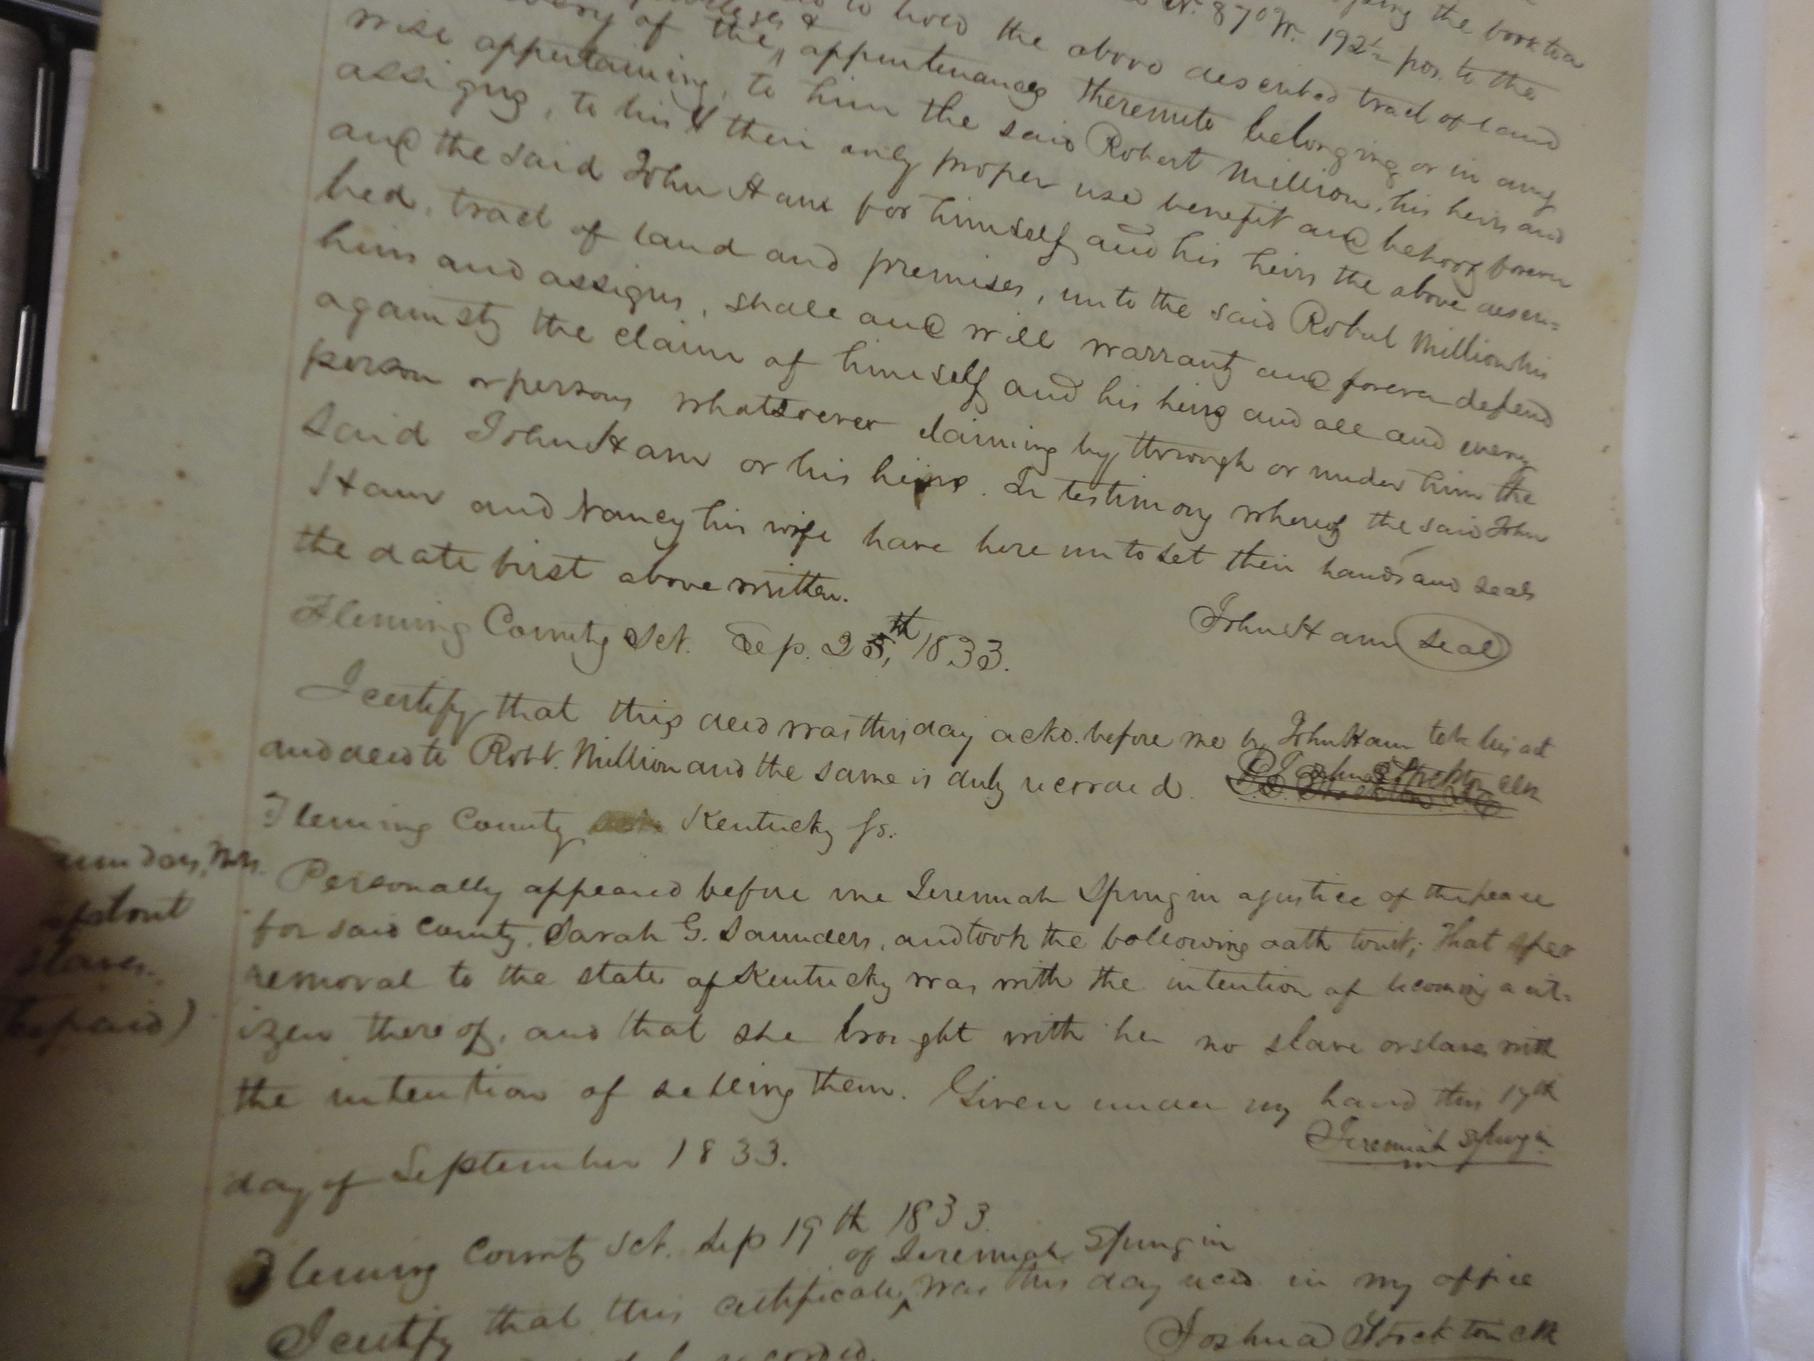 the book to a
N. 87° W. 192½ pos. to the
to hold the above described tract of land
privileges &
of the appurtenances thereunto belonging or in any
wise appertaining, to him the said Robert Million, his heirs and
assigns, to his & their only proper use benefit and behoof forever
and the said John Ham for himself and his heirs the above descri=
bed, tract of land and premises, unto the said Robert Million his
heirs and assigns, shall and will warrant and forever defend
against the claim of himself and his heirs and all and every
person or persons whatsoever claiming by through or under him the
said John Ham or his heirs. In testimony whereof the said John
Ham and Nancy his wife have here unto set their hands and seals
the date first above written.
John Ham Seal
Fleming County Sct. Sep. 25th, 1833.
I certify that this deed was this day ackd. before me by John Ham to be his act
and deed to Robt. Million and the same is duly recorded. Joshua Stockton clk
Fleming County Kentucky Ss.
Saunders, Mrs.
about
slaves.
paid)
Personally appeared before me Jeremiah Spurgin a justice of the peace
for said county, Sarah G. Saunders, and took the following oath towit; That her
removal to the state of Kentucky was with the intention of becoming a cit=
izen there of, and that she brought with her no slave or slaves with
the intention of selling them. Given under my hand this 17th
day of September 1833.
Jeremiah Spurgin
Fleming County Sct. Sep 19th 1833.
of Jeremiah Spurgin
I certify that this certificate was this day recd. in my office
recorded.
Joshua Stockton clk